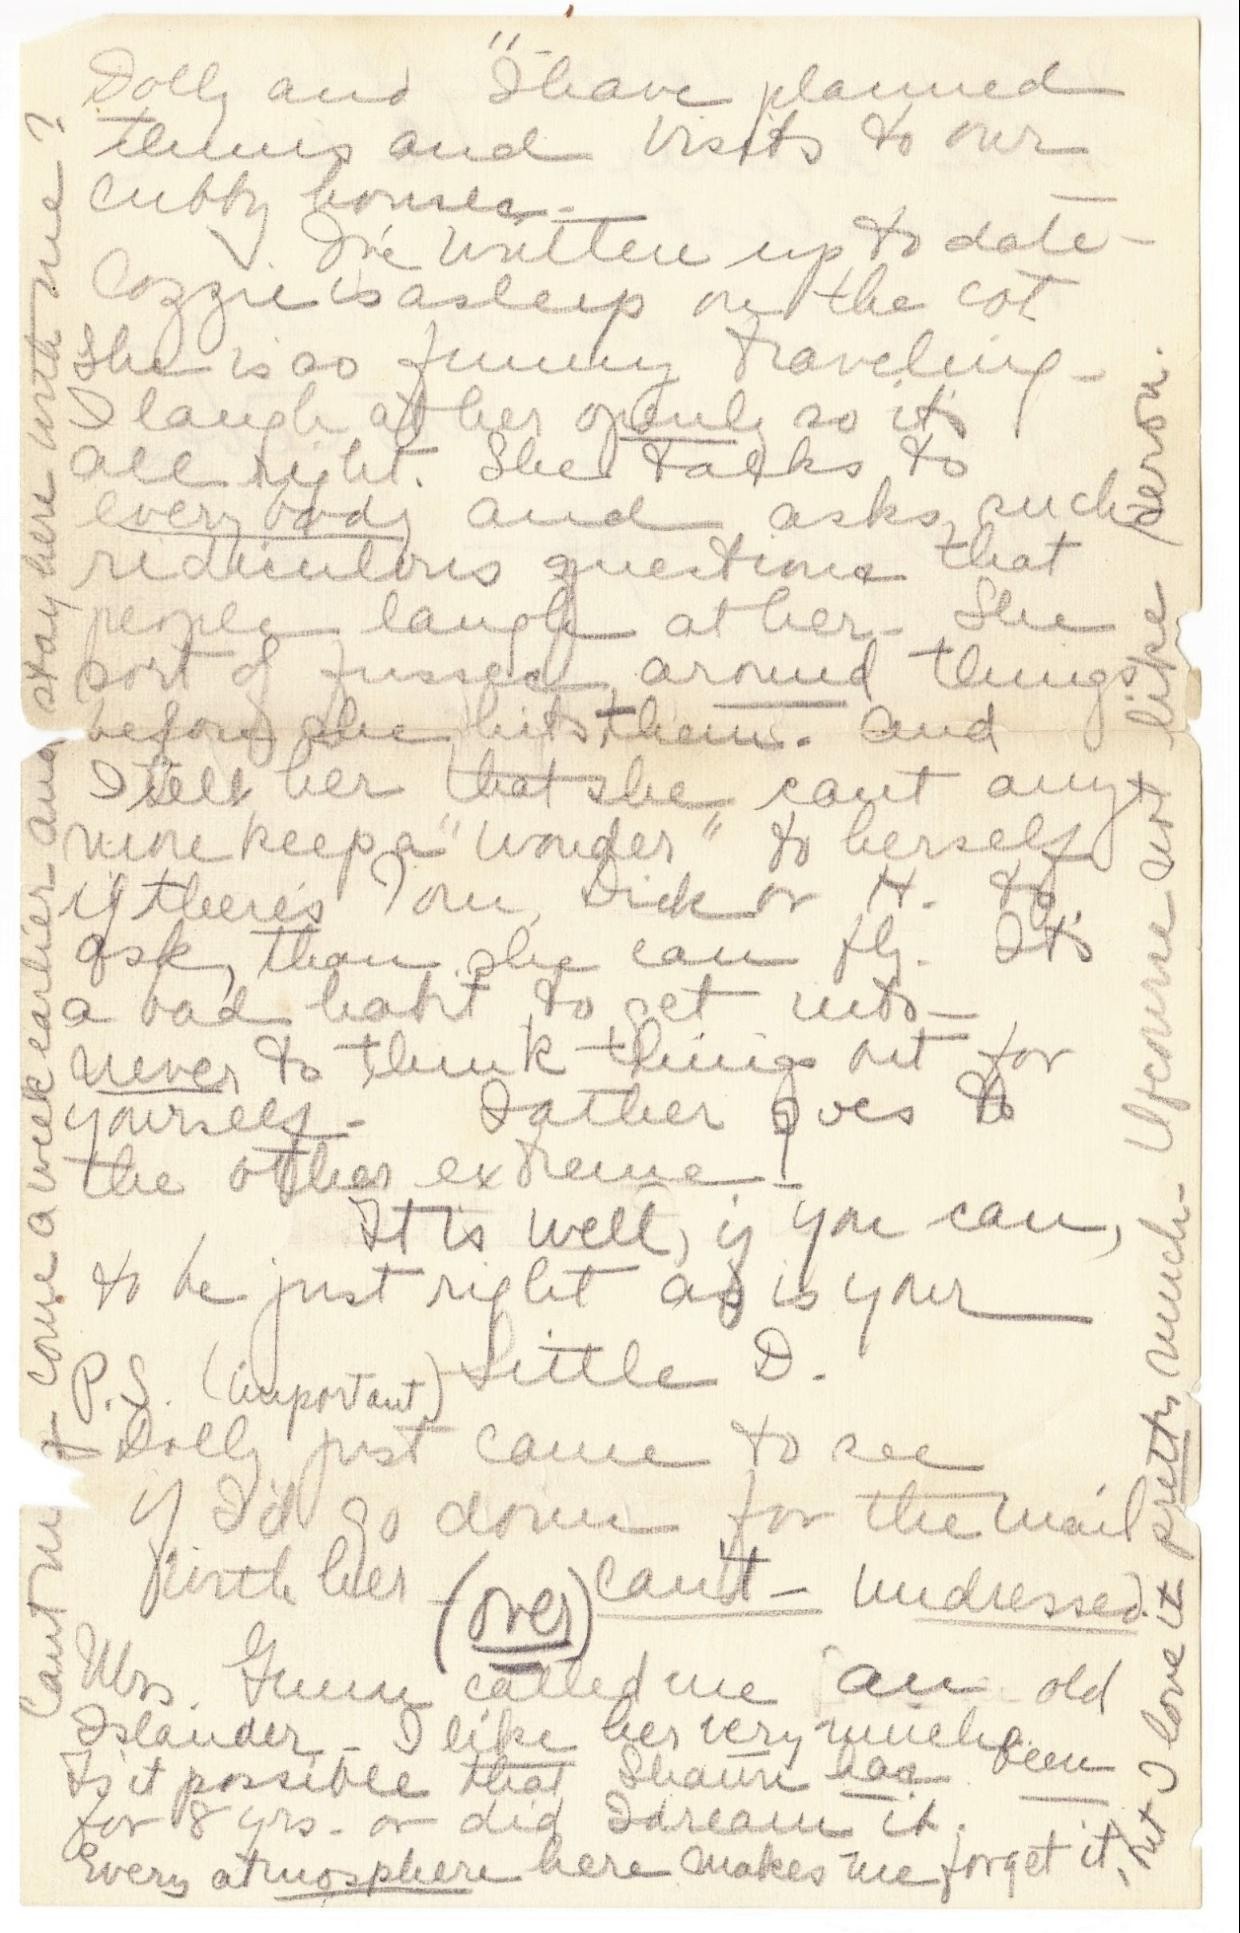 Dolly and "I have planned
tennis and visits to our
cubby houses.
I've written up to date -
Cozzie is asleep on the cot
She is so funny traveling -
I laugh at her openly so it's
all right. She talks to
everybody and asks such
ridiculous questions that
people laugh at her - She
sort of fusses around things
before she hits them. And
I tell her that she cant any
more keep a "wonder" to herself
if there's Tom, Dick or H. to
ask, than she can fly. It's
a bad habit to get into -
never to think things out for
yourself - Father goes to
the other extreme -
It is well, if you can,
to be just right as is your
Little D.
P.S. (important)
Dolly just came to see
if I'd go down for the mail
with her - can't - undressed.
(over)
Mrs. Gunn called me an old
Islander - I like her very much.
Is it possible that Shaun has been
for 8 yrs. or did I dream it.
Every atmosphere here makes me forget it,
but I love it pretty much. Of course not like
Cant we come a week earlier and stay here with me?